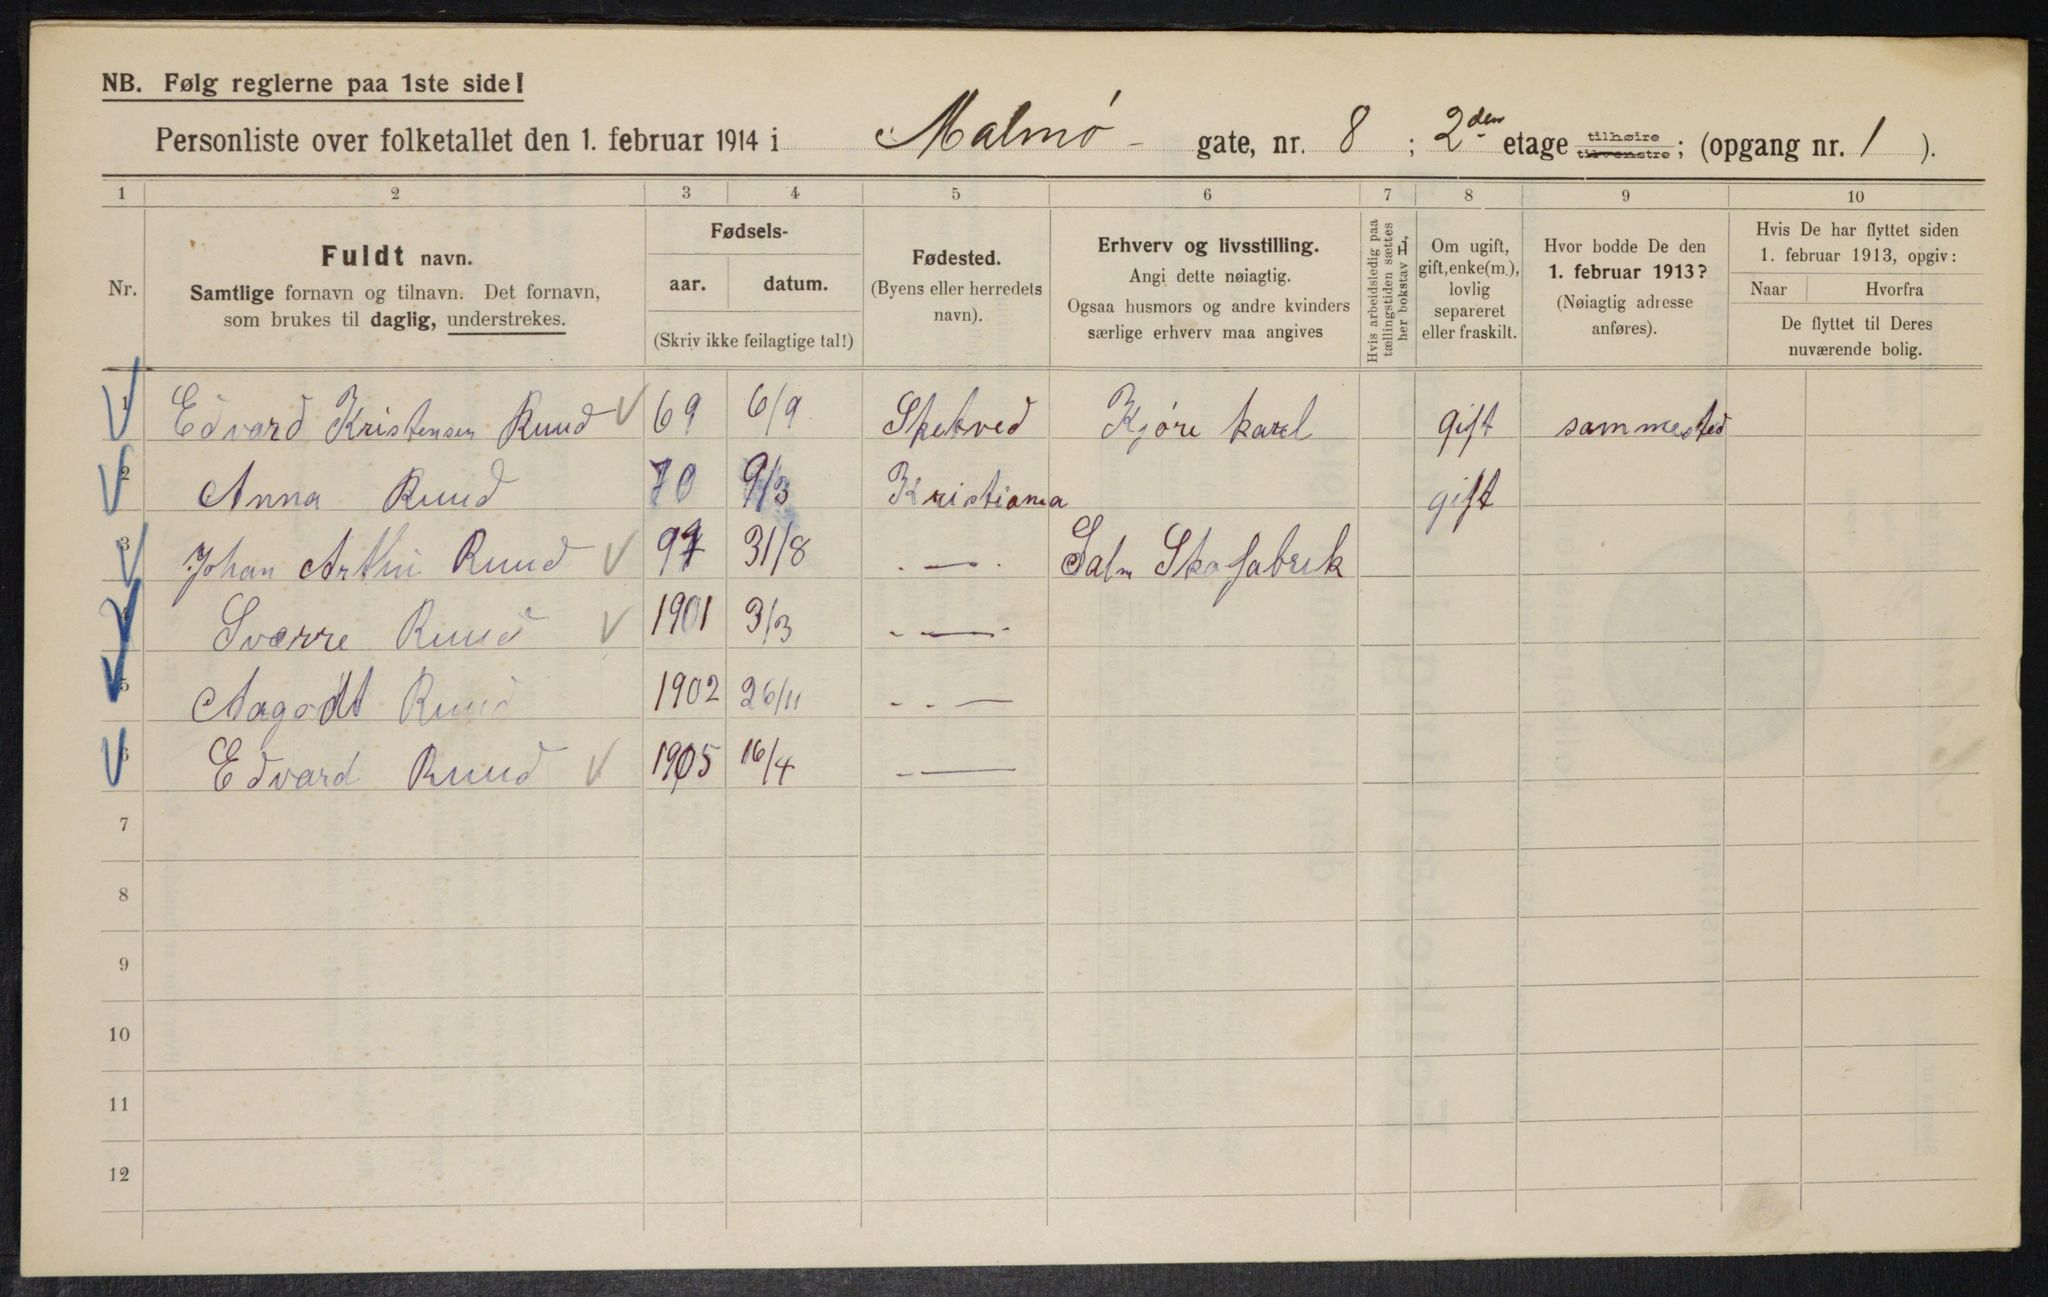 NB. Følg reglerne paa 1ste side!
Personliste over folketallet den 1. februar 1914 i Malmø - gate, nr. 8 ; 2den etage tilhøire tilvenstre; (opgang nr. 1 ).
1 2 3 4 5 6 7 8 9 10
Nr.
Fuldt navn.
Samtlige fornavn og tilnavn. Det fornavn,
som brukes til daglig, understrekes.
Fødsels-
aar. datum.
(Skriv ikke feilagtige tal!)
Fødested.
(Byens eller herredets
navn).
Erhverv og livsstilling.
Angi dette nøiagtig.
Ogsaa husmors og andre kvinders
særlige erhverv maa angives
Hvis arbeidsledig paa
tællingstiden sættes
her bokstav L,
Om ugift,
gift, enke(m.),
lovlig
separeret
eller fraskilt.
Hvor bodde De den
1. februar 1913?
(Nøiagtig adresse
anføres).
Hvis De har flyttet siden
1. februar 1913, opgiv:
Naar Hvorfra
De flyttet til Deres
nuværende bolig.
1 Edvard Kristensen Ruud 69 6/9 Sketved Kjøre karl gift sammested
2 Anna Ruud 70 9/3 Kristiania gift
3 Johan Ruud 31/8 - — - Skofabrik
Sverre Ruud 1901 3/3 - —
5 Ruud 1902 26/11 - - —
6 Edvard Ruud 1905 16/4 - —
7
8
9
10
11
12